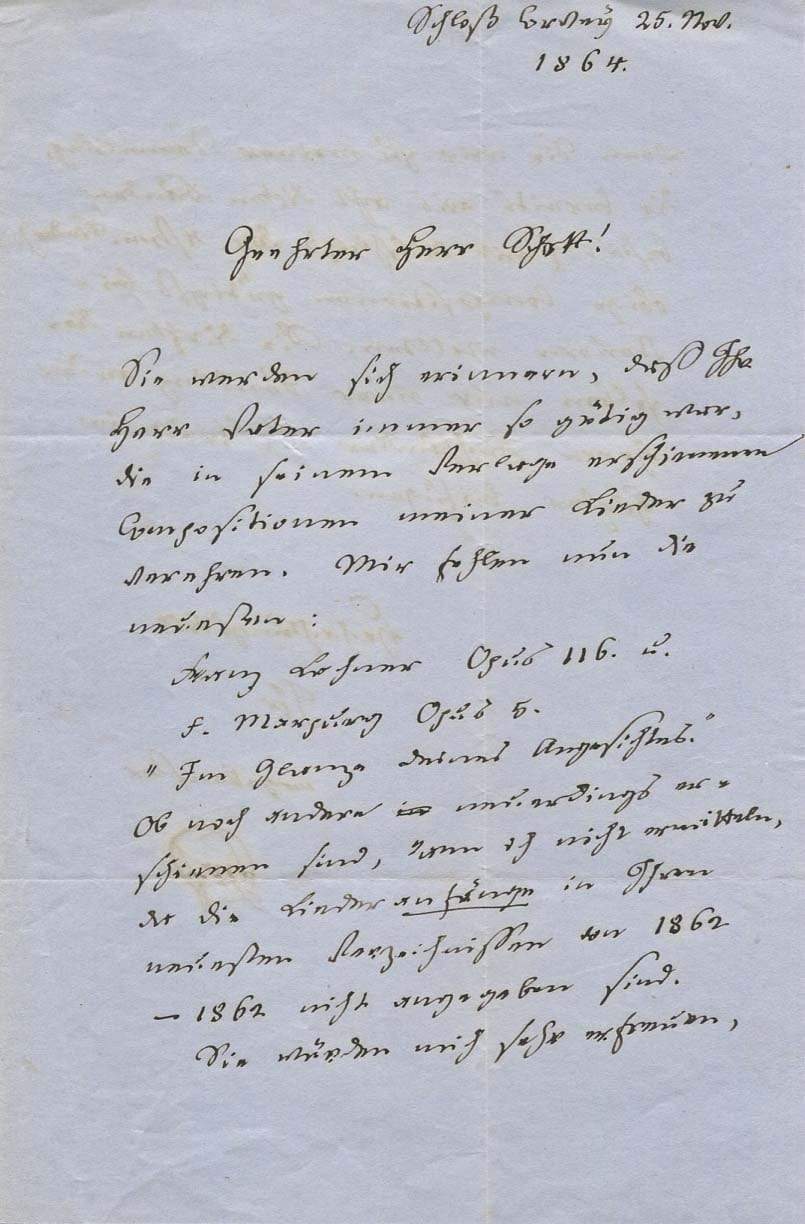 Schloß Corvey 25. Nov.
1864.
Geehrter Herr Schott!
Sie werden sich erinnern, daß Ihr
Herr Vater immer so gütig war,
die in seinem Verlage erschienenen
Compositionen meiner Lieder zu
verehren. Mir fehlen nun die
neuesten:
Franz Lachner Opus 116. u.
F. Marpurg Opus 5.
"Im Glanze deines Angesichtes."
Ob noch andere neuerdings er-
schienen sind, kann ich nicht ermitteln,
da die Liederanfänge in Ihren
neuesten Verzeichnissen von 1862
– 1862 nicht angegeben sind.
Sie würden mich sehr erfreuen,